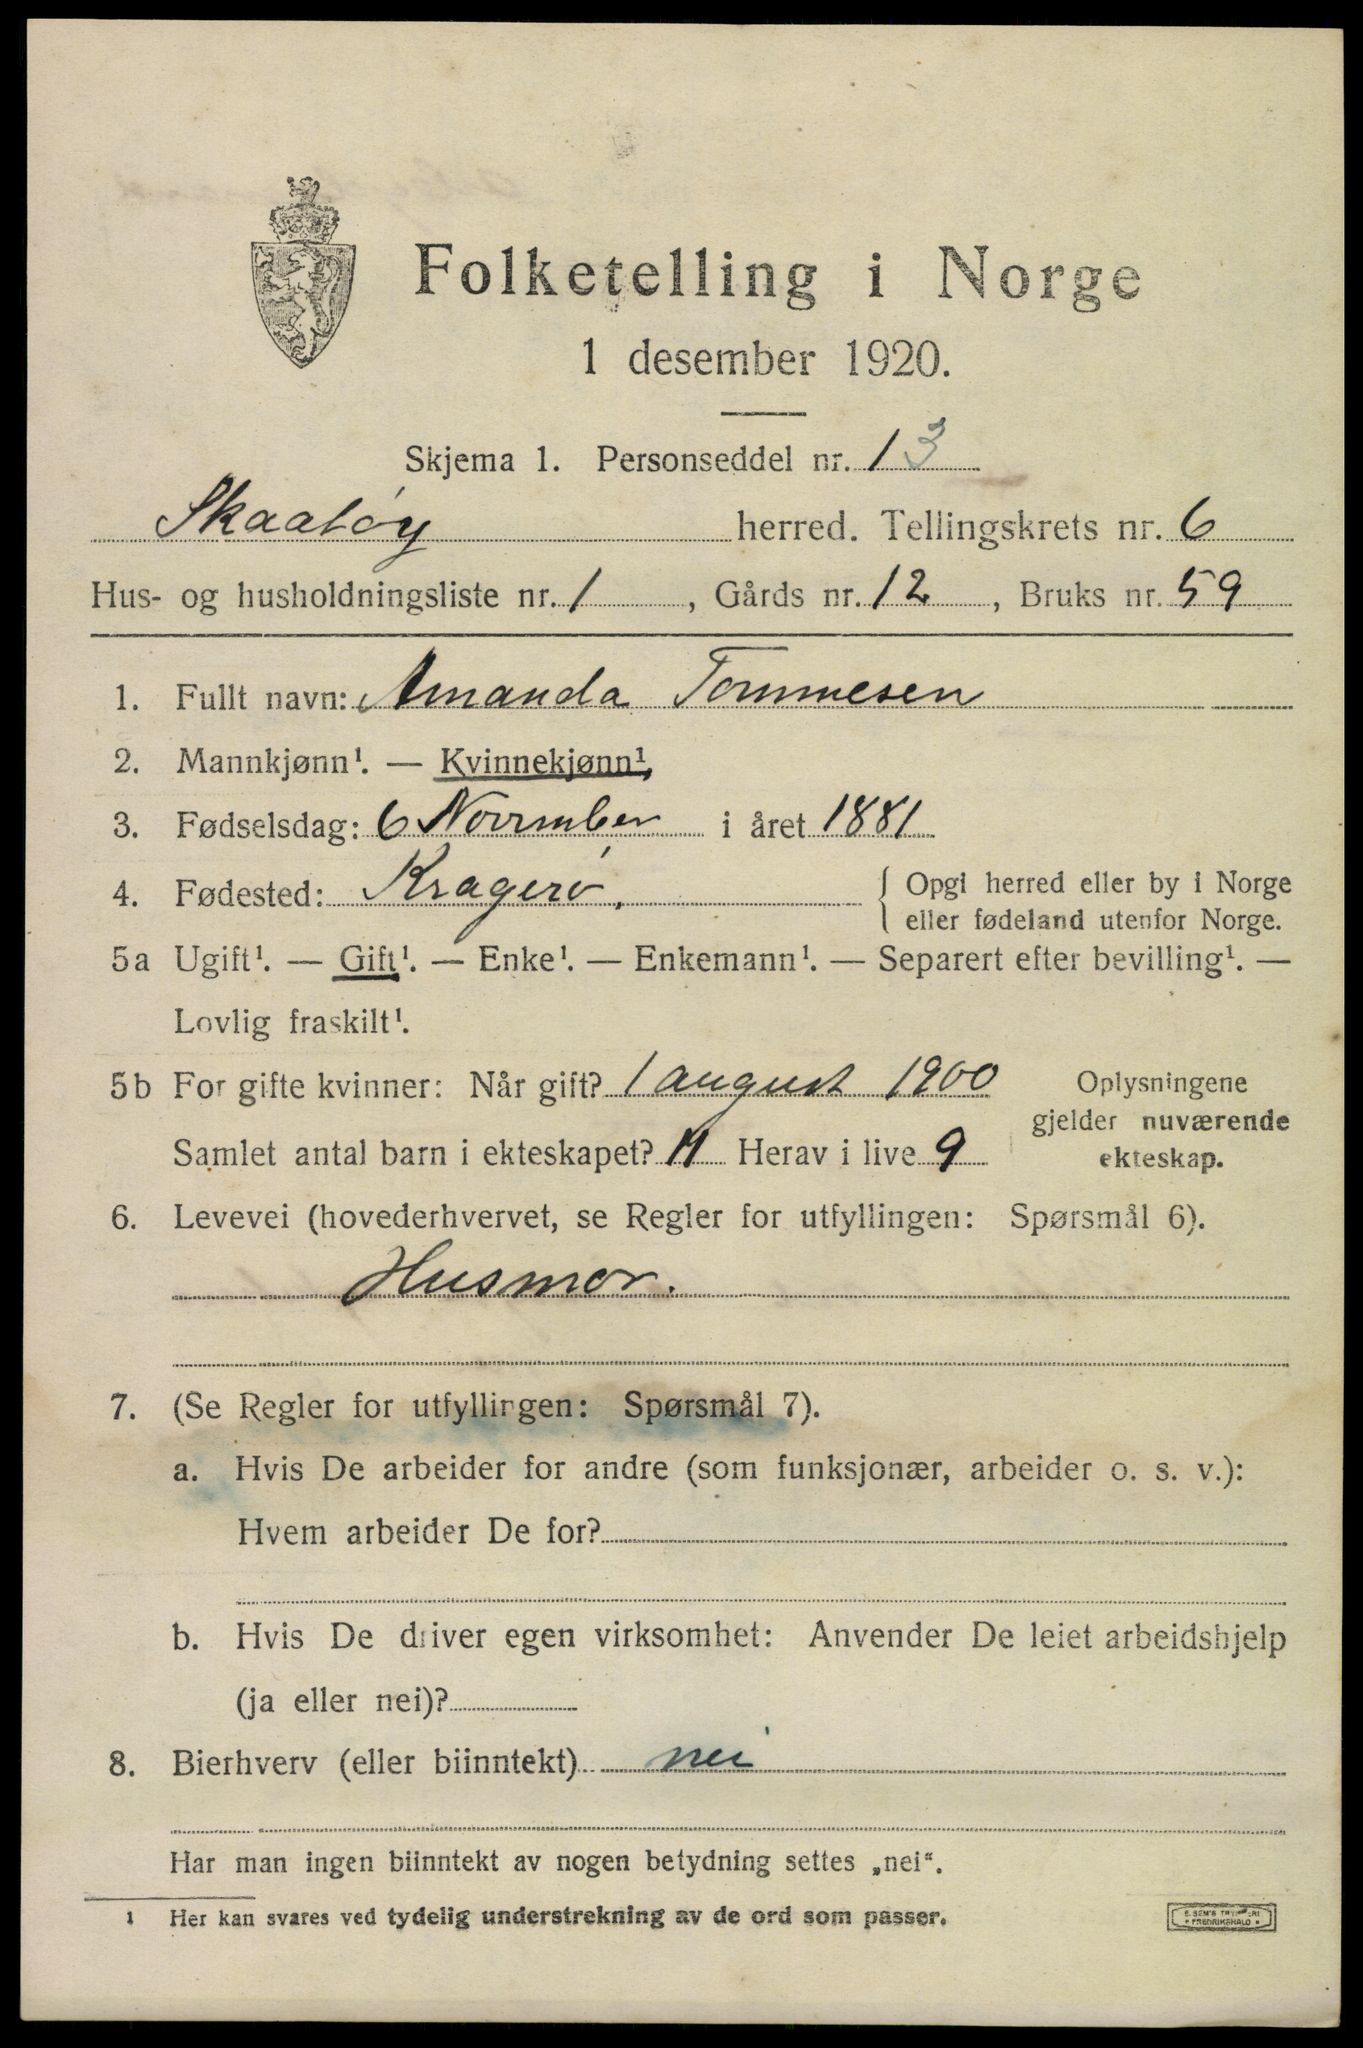 Folketelling i Norge
1 desember 1920.
Skjema 1. Personseddel nr. 13
Skaatøy herred. Tellingskrets nr. 6
Hus- og husholdningsliste nr. 1, Gårds nr. 12, Bruks nr. 59
1. Fullt navn: Amanda Tommesen
2. Mannkjønn¹. — Kvinnekjønn¹.
3. Fødselsdag: 6 November i året 1881
4. Fødested: Kragerø. { Opgi herred eller by i Norge
eller fødeland utenfor Norge.
5a Ugift¹. — Gift¹. — Enke¹. — Enkemann¹. — Separert efter bevilling¹. —
Lovlig fraskilt¹.
5b For gifte kvinner: Når gift? 1 august 1900 Oplysningene
gjelder nuværende
Samlet antal barn i ekteskapet? 11 Herav i live 9 ekteskap.
6. Levevei (hovederhvervet, se Regler for utfyllingen: Spørsmål 6).
Husmor.
7. (Se Regler for utfyllingen: Spørsmål 7).
a. Hvis De arbeider for andre (som funksjonær, arbeider o. s. v.):
Hvem arbeider De for?
b. Hvis De driver egen virksomhet: Anvender De leiet arbeidshjelp
(ja eller nei)?
8. Bierhverv (eller biinntekt) nei
Har man ingen biinntekt av nogen betydning settes „nei“.
1 Her kan svares ved tydelig understrekning av de ord som passer.
FREDRIKSHALD